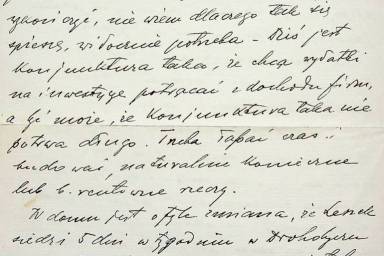 zakończyć, nie wiem dlaczego tak się
spieszą, widocznie potrzeba - Dziś jest
konjunktura taka, że chcą wydatki
na inwestycje potrącać z dochodu firm,
a być może, że konjunktura taka nie
potrwa długo. Trzeba łapać czas i
budować, naturalnie konieczne
lub b. rentowne rzeczy.
W domu jest o tyle zmiana, że Leszek
siedzi 5 dni w tygodniu w Drohobyczu